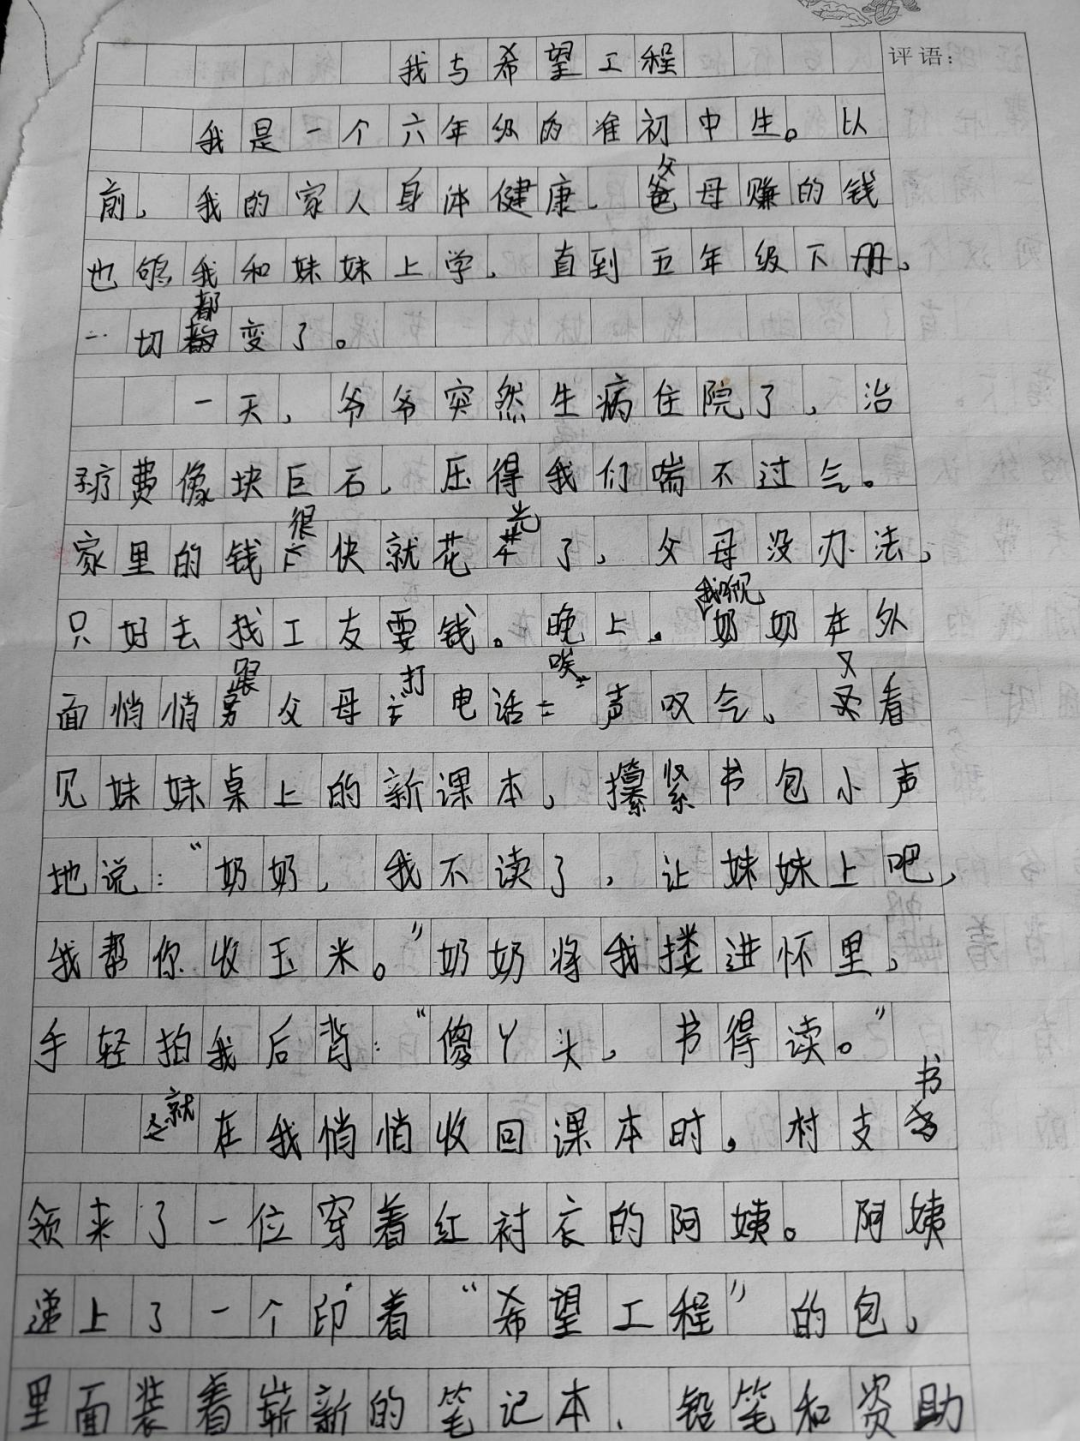 我与希望工程
评语：
我是一个六年级的准初中生。以
前，我的家人身体健康，父母赚的钱
也够我和妹妹上学，直到五年级下册，
一切都变了。
一天，爷爷突然生病住院了，治
疗费像块巨石，压得我们喘不过气。
家里的钱很快就花光了，父母没办法，
只好去找工友要钱。晚上，我听见奶奶在外
面悄悄跟父母打电话唉声叹气，又看
见妹妹桌上的新课本，攥紧书包小声
地说：“奶奶，我不读了，让妹妹上吧，
我帮你收玉米。”奶奶将我搂进怀里，
手轻拍我后背：“傻丫头，书得读。”
就在我悄悄收回课本时，村支书
领来了一位穿着红衬衣的阿姨。阿姨
递上了一个印着“希望工程”的包，
里面装着崭新的笔记本、铅笔和资助